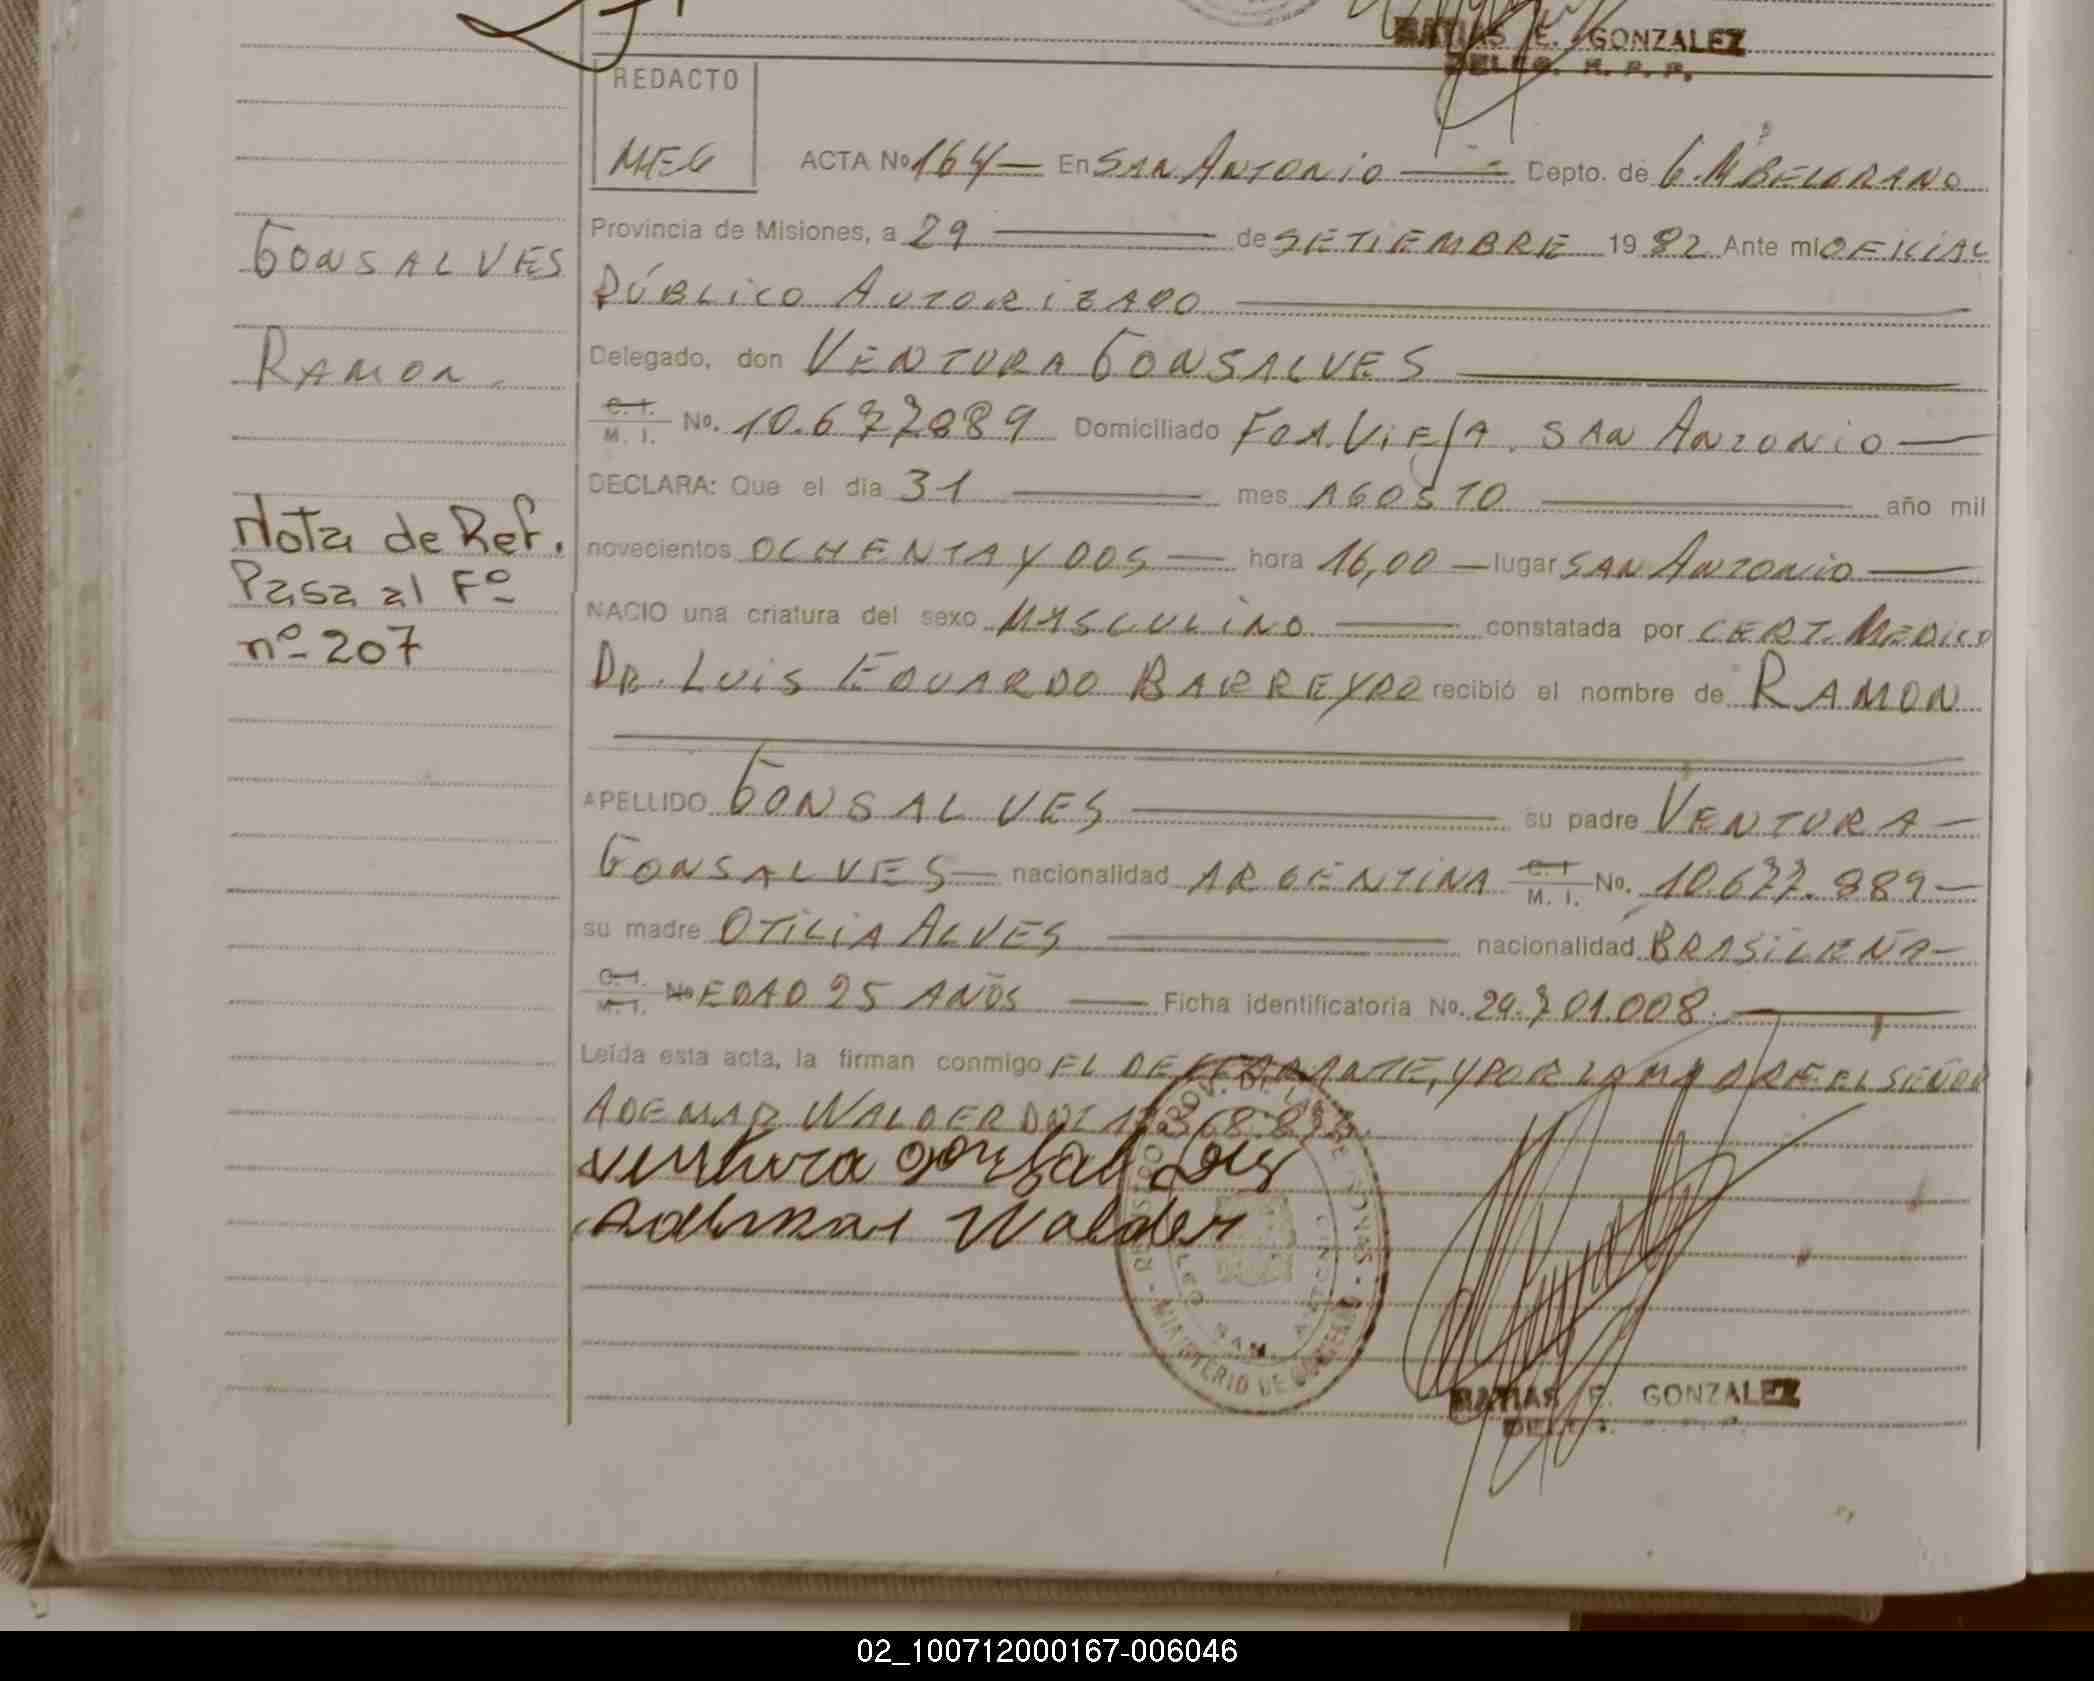 MATIAS E. GONZALEZ
DELEG. R. P. P.
REDACTO
MEG
ACTA No 164 En SAN ANTONIO Depto. de G. M. BELGRANO
Provincia de Misiones, a 29 de SETIEMBRE 19 82 Ante mi OFICIAL
PÚBLICO AUTORIZADO
Delegado, don VENTURA GONSALVES
C. I.
M. I. No. 10.677889 Domiciliado FCA. VIEJA. SAN ANTONIO
DECLARA: Que el día 31 mes AGOSTO año mil
novecientos OCHENTA Y DOS hora 16,00 lugar SAN ANTONIO
NACIO una criatura del sexo MASCULINO constatada por CERT. MEDICO
DR. LUIS EDUARDO BARREYRO recibió el nombre de RAMON
APELLIDO GONSALVES su padre VENTURA
GONSALVES nacionalidad ARGENTINA C. I. M. I. No. 10.677.889
su madre OTILIA ALVES nacionalidad BRASILEÑA
C. I. M. I. No EDAD 25 AÑOS Ficha identificatoria No. 29.701.008.
Leída esta acta, la firman conmigo EL DECLARANTE, Y POR LA MADRE EL SEÑOR
ADEMAR WALDER DNI
Ventura gonsalves
Ademar Walder
GONSALVES
RAMON.
Nota de Ref.
Pasa al Fº
nº 207
MINISTERIO DE GOBIERNO
SAN ANTONIO
MATIAS E. GONZALEZ
DELEG.
02_100712000167-006046